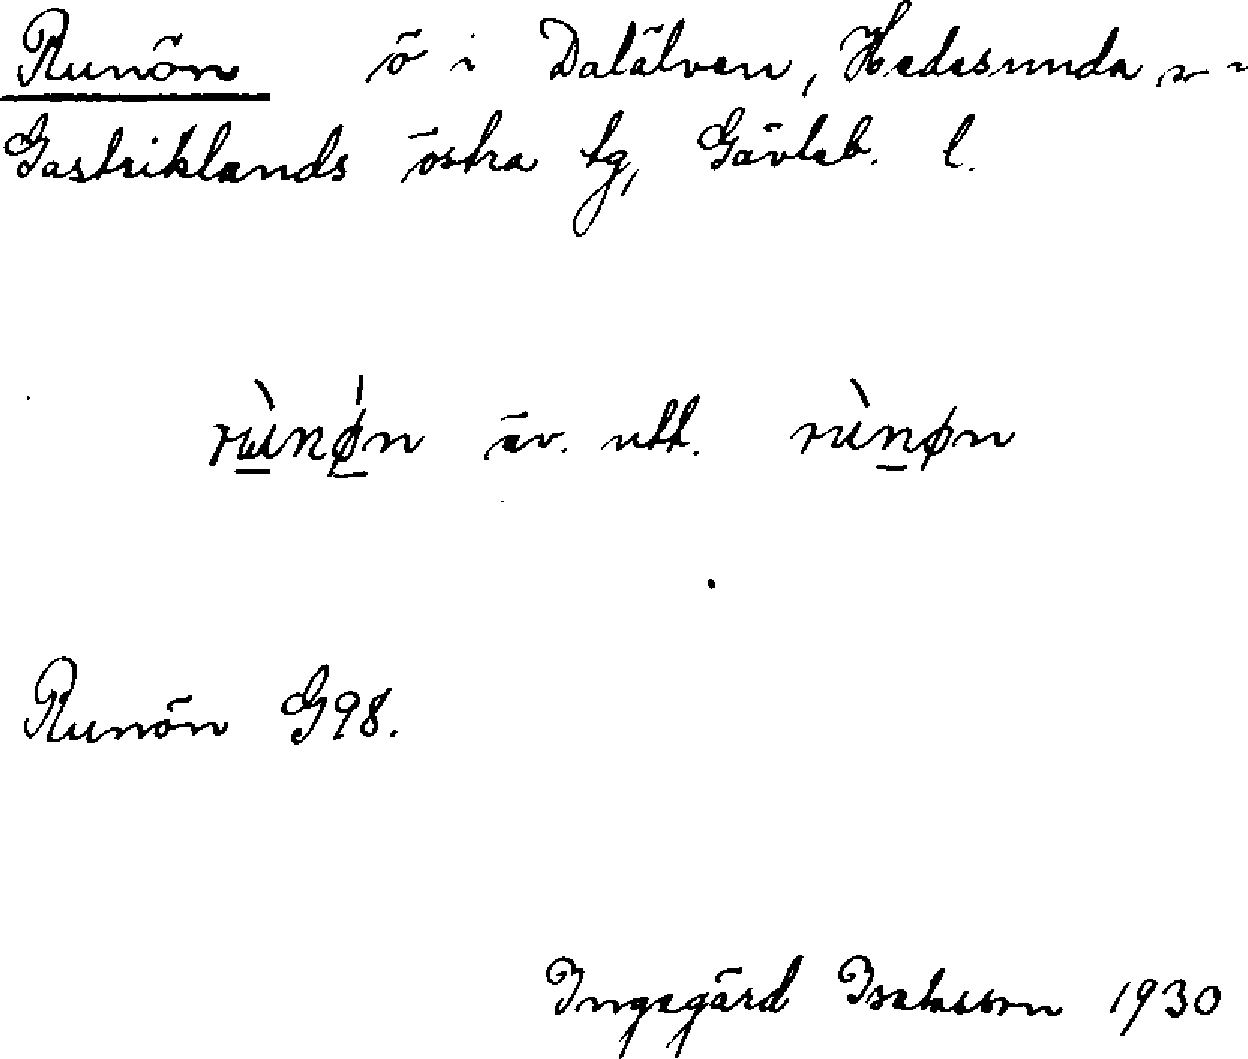 Runön ö i Dalälven, Hedesunda
Gästriklands östra tg, Gävleb. l.
rùnǿn äv. utt. rùnøn
Runön G98.
Ingegärd Isaksson 1930